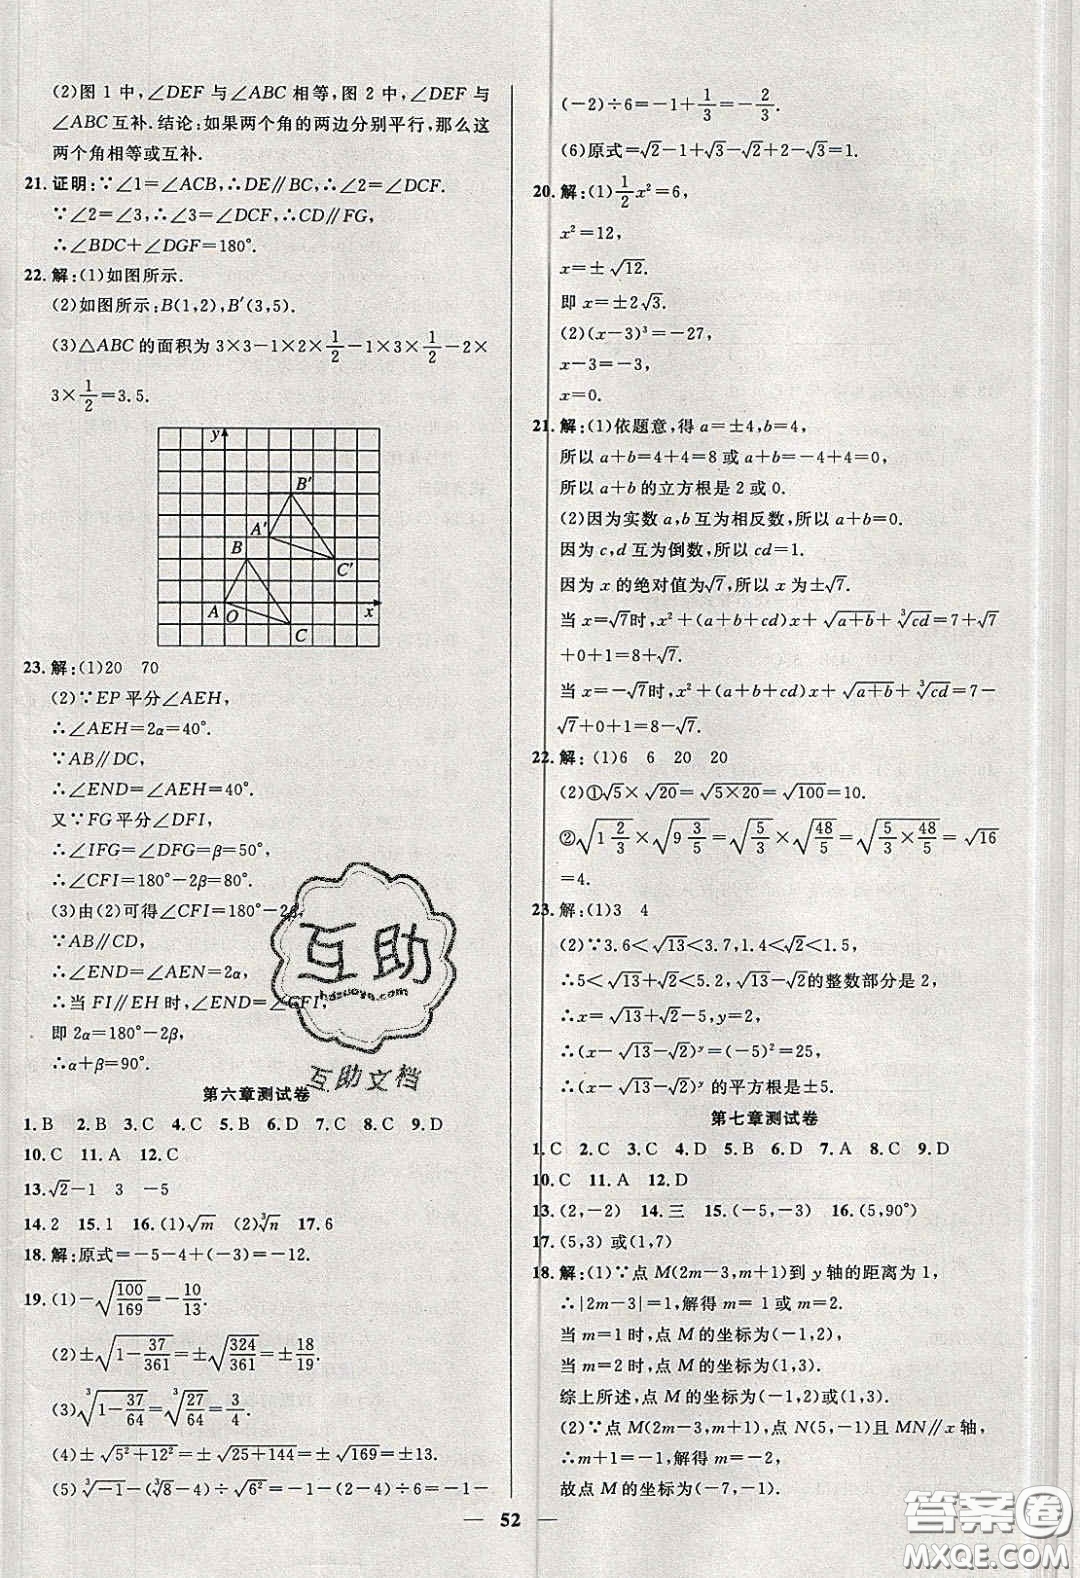 (2)图1中,∠DEF与∠ABC相等,图2中,∠DEF与
∠ABC互补.结论:如果两个角的两边分别平行,那么这
两个角相等或互补.
21.证明:∵∠1=∠ACB,∴DE∥BC,∴∠2=∠DCF.
∵∠2=∠3,∴∠3=∠DCF,∴CD∥FG,
∴∠BDC+∠DGF=180°.
22.解:(1)如图所示.
(2)如图所示:B(1,2),B′(3,5).
(3)△ABC的面积为3×3-1×2×1/2-1×3×1/2-2×
3×1/2=3.5.
y
B′
A′
B
C′
A
O
x
C
23.解:(1)20 70
(2)∵EP平分∠AEH,
∴∠AEH=2α=40°.
∵AB∥DC,
∴∠END=∠AEH=40°.
又∵FG平分∠DFI,
∴∠IFG=∠DFG=β=50°,
∴∠CFI=180°-2β=80°.
(3)由(2)可得∠CFI=180°-2β.
∵AB∥CD,
∴∠END=∠AEN=2α,
∴当FI∥EH时,∠END=∠CFI,
即2α=180°-2β,
∴α+β=90°.
第六章测试卷
1.B 2.B 3.C 4.C 5.B 6.D 7.C 8.C 9.D
10.C 11.A 12.C
13.√2-1 3 -5
14.2 15.1 16.(1)√m (2)∛n 17.6
18.解:原式=-5-4+(-3)=-12.
19.(1)-√(100/169)=-10/13.
(2)±√(1-37/361)=±√(324/361)=±18/19.
(3)∛(1-37/64)=∛(27/64)=3/4.
(4)±√(5²+12²)=±√(25+144)=±√169=±13.
(5)∛-1-(∛8-4)÷√(6²)=-1-(2-4)÷6=-1-
(-2)÷6=-1+1/3=-2/3.
(6)原式=√2-1+√3-√2+2-√3=1.
20.解:(1)1/2x²=6,
x²=12,
x=±√12.
即x=±2√3.
(2)(x-3)³=-27,
x-3=-3,
x=0.
21.解:(1)依题意,得a=±4,b=4,
所以a+b=4+4=8或a+b=-4+4=0,
所以a+b的立方根是2或0.
(2)因为实数a,b互为相反数,所以a+b=0.
因为c,d互为倒数,所以cd=1.
因为x的绝对值为√7,所以x为±√7.
当x=√7时,x²+(a+b+cd)x+√(a+b)+∛cd=7+√7
+0+1=8+√7.
当x=-√7时,x²+(a+b+cd)x+√(a+b)+∛cd=7-
√7+0+1=8-√7.
22.解:(1)6 6 20 20
(2)①√5×√20=√(5×20)=√100=10.
②√(1 2/3)×√(9 3/5)=√(5/3)×√(48/5)=√(5/3×48/5)=√16
=4.
23.解:(1)3 4
(2)∵3.6<√13<3.7,1.4<√2<1.5,
∴5<√13+√2<5.2,√13-√2的整数部分是2,
∴x=√13+√2-5,y=2,
∴(x-√13-√2)ʸ=(-5)²=25,
∴(x-√13-√2)ʸ的平方根是±5.
第七章测试卷
1.C 2.C 3.C 4.D 5.B 6.D 7.A 8.C 9.D
10.C 11.A 12.D
13.(2,-2) 14.三 15.(-5,-3) 16.(5,90°)
17.(5,3)或(1,7)
18.解:(1)∵点M(2m-3,m+1)到y轴的距离为1,
∴|2m-3|=1,解得m=1或m=2.
当m=1时,点M的坐标为(-1,2),
当m=2时,点M的坐标为(1,3).
综上所述,点M的坐标为(-1,2)或(1,3).
(2)∵点M(2m-3,m+1),点N(5,-1)且MN∥x轴,
∴m+1=-1,解得m=-2,
故点M的坐标为(-7,-1).
52
互助
hdzuoye.com
互助文档
答案圈
MXQE.COM